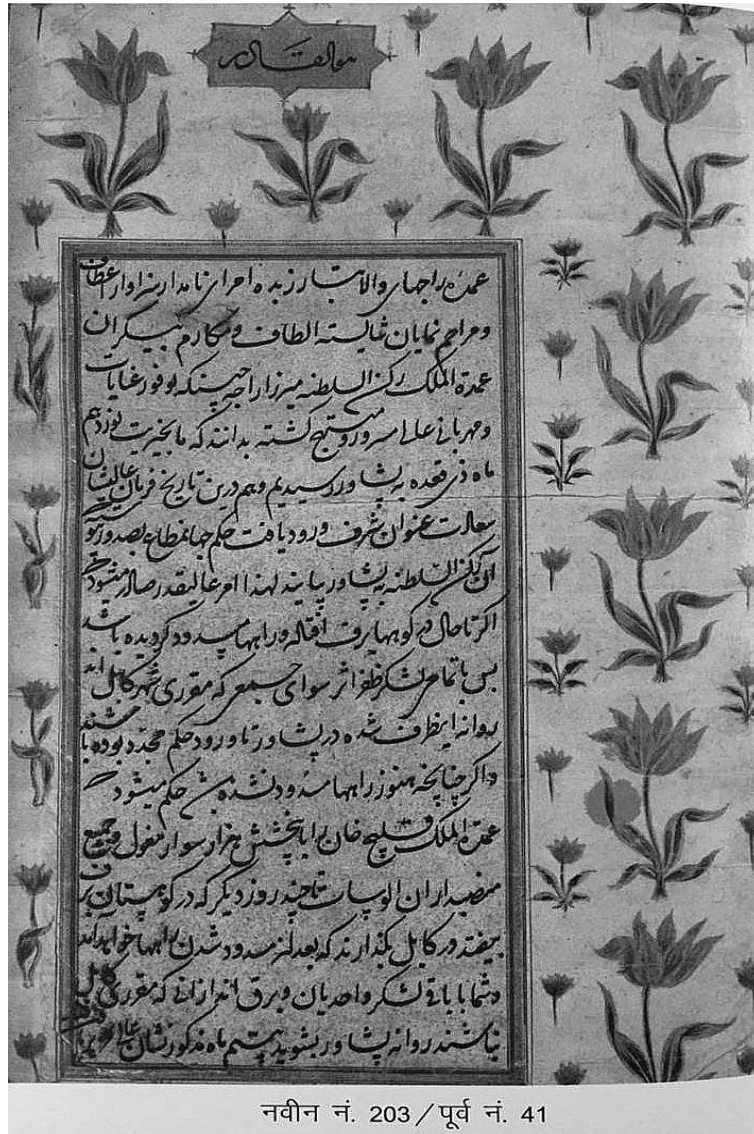 هو القادر
عمده راجهای والا تبار زبده امرای نامدار سزاوار اعطاف
و مراحم نمایان شایسته الطاف و مکارم بیکران
عمدة الملک رکن السلطنه میرزا راجه جیسنکه بوفور عنایات
و مهربانی عالی مسرور و مبتهج کشته بدانند که ما بخیریت نوزدهم
ماه ذی قعده به پشاور رسیدیم و هم درین تاریخ فرمان عالیشان
سعادت عنوان شرف ورود یافت حکم جهانمطاع بصدور
آن رکن السلطنه به پشاور بیایند لهذا امر عالیقدر صادر میشود که
اکر تا حال در کوهها برف افتاده و راهها مسدود کردیده باشد
بس با تمامی لشکر ظفر اثر سوای جمعی که مقرری شهر کابل اند
روانه اینطرف شده در پشاور تا ورود حکم مجدد بوده باشند
و اکر چنانچه هنوز راهها مسدود نشده حکم میشود که
عمدة الملک قلیج خان را با پنجشش هزار سوار مغول و جمیع
منصبداران الوسات تا چند روز دیکر که در کوهستان برف
بیفتد در کابل بکذارند که بعد از مسدود شدن راهها خواهد آمد
و شما با باقی لشکر و احدیان و برق اندازانی که مقرری کابل
نباشند روانه پشاور بشوید بیستم ماه مذکور نشان عالی
नवीन नं. 203 / पूर्व नं. 41